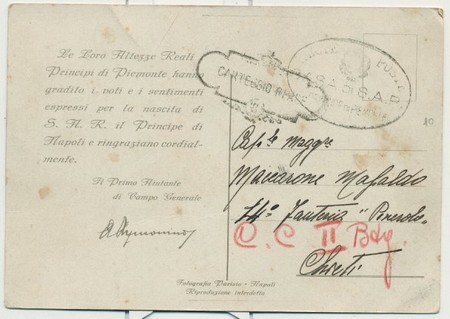 Le Loro Altezze Reali
Principi di Piemonte, hanno
gradito i voti e i sentimenti
espressi per la nascita di
S. A. R. il Principe di
Napoli e ringraziano cordial-
mente.
Il Primo Aiutante
di Campo Generale
CARTEGGIO
POSTE
Maccarone Mafaldo
14° Fanteria
C. C II Btg.
Chieti
Fotografia Parisio - Napoli
Riproduzione interdetta